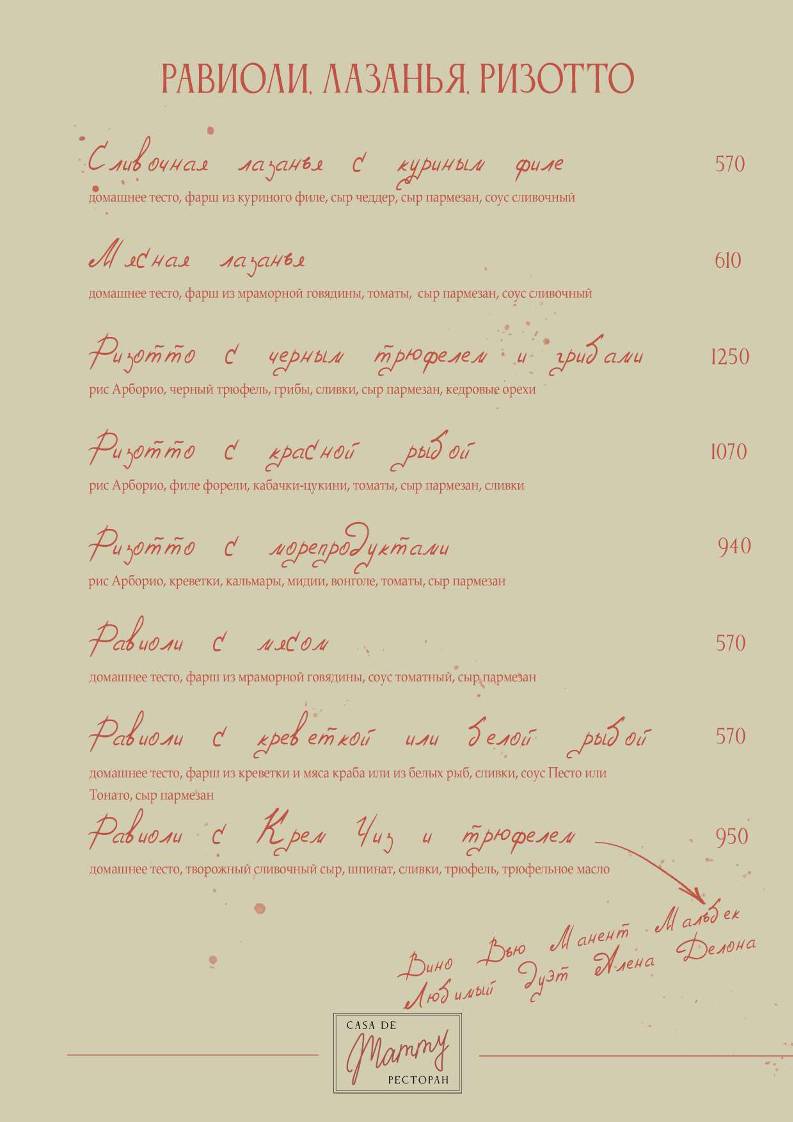 РАВИОЛИ, ЛАЗАНЬЯ, РИЗОТТО
Сливочная лазанья с куриным филе 570
домашнее тесто, фарш из куриного филе, сыр чеддер, сыр пармезан, соус сливочный
Мясная лазанья 610
домашнее тесто, фарш из мраморной говядины, томаты, сыр пармезан, соус сливочный
Ризотто с черным трюфелем и грибами 1250
рис Арборио, черный трюфель, грибы, сливки, сыр пармезан, кедровые орехи
Ризотто с красной рыбой 1070
рис Арборио, филе форели, кабачки-цукини, томаты, сыр пармезан, сливки
Ризотто с морепродуктами 940
рис Арборио, креветки, кальмары, мидии, вонголе, томаты, сыр пармезан
Равиоли с мясом 570
домашнее тесто, фарш из мраморной говядины, соус томатный, сыр пармезан
Равиоли с креветкой или белой рыбой 570
домашнее тесто, фарш из креветки и мяса краба или из белых рыб, сливки, соус Песто или
Тонато, сыр пармезан
Равиоли с Крем Чиз и трюфелем 950
домашнее тесто, творожный сливочный сыр, шпинат, сливки, трюфель, трюфельное масло
Вино Вью Манент Мальбек
Любимый дуэт Алена Делона
CASA DE
Mammy
РЕСТОРАН